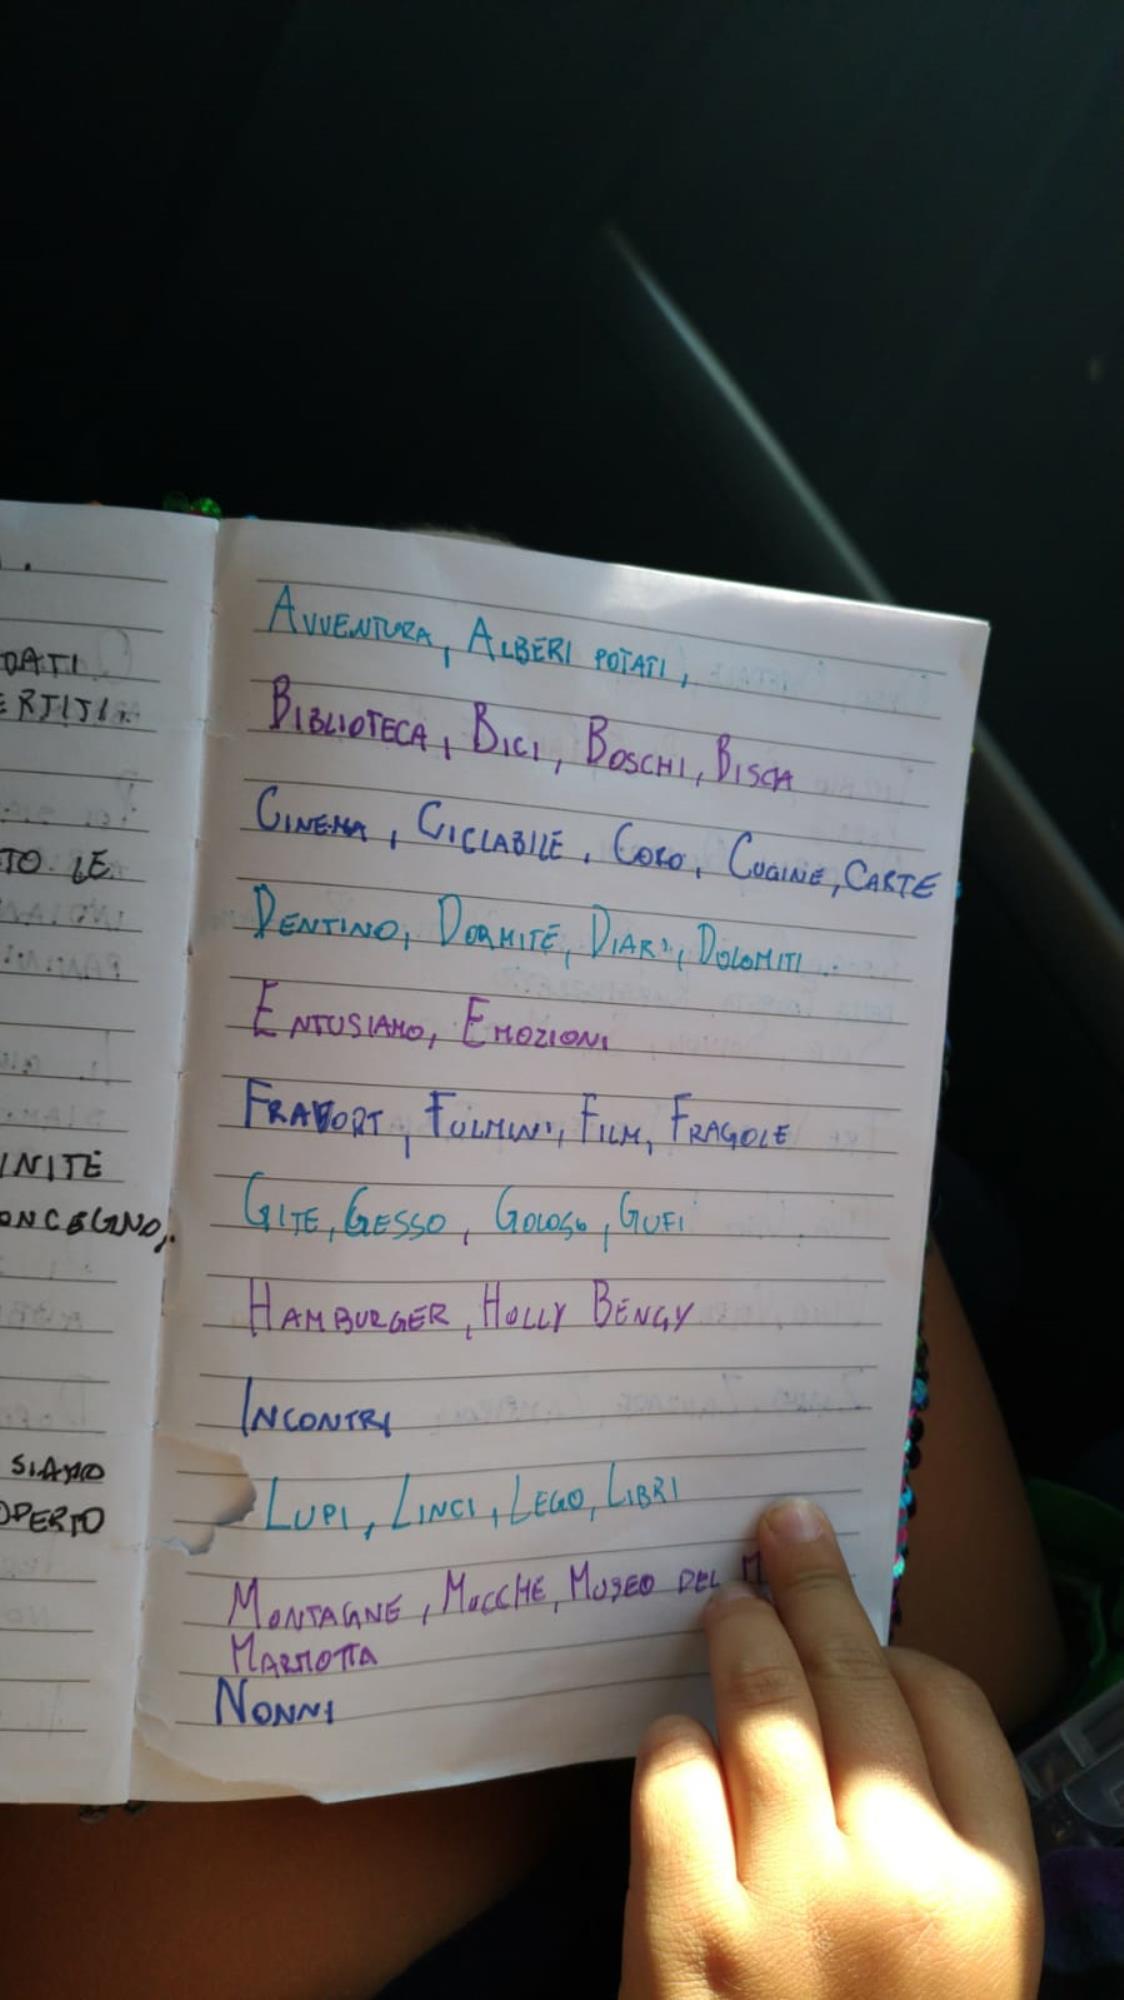 DATI
ERTITI.
TO LE
INITE
ONCEGNO,.
SIAMO
OPERTO
AVVENTURA, ALBERI POTATI,
BIBLIOTECA, BICI, BOSCHI, BISCIA
CINEMA, CICLABILE, CORO, CUGINE, CARTE
DENTINO, DORMITE, DIARI, DOLOMITI...
ENTUSIAMO, EMOZIONI
FRAVORT, FULMINI, FILM, FRAGOLE
GITE, GESSO, GOLOSO, GUFI
HAMBURGER, HOLLY BENGY
INCONTRI
LUPI, LINCI, LEGO, LIBRI
MONTAGNE, MUCCHE, MUSEO DEL M
MARMOTTA
NONNI